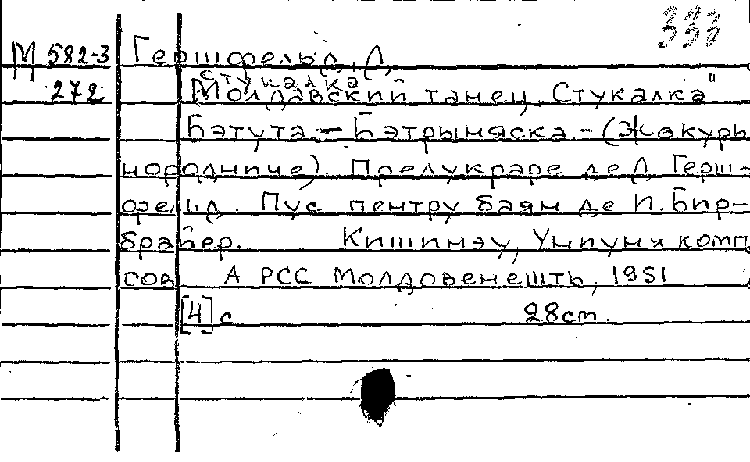 333
М 582-3 Гершфельд, Д.
272 Стукалка
Молдавский танец „Стукалка"
Бэтута. - Бэтрыняска. - (Жокурь
нородниче). Прелукраре де Д. Герш-
фельд. Пус пентру баян де И. Бир-
брайер. Кишинэу, Униуня комп
сов А РСС Молдовенешть, 1951
[4] с 28 cm.